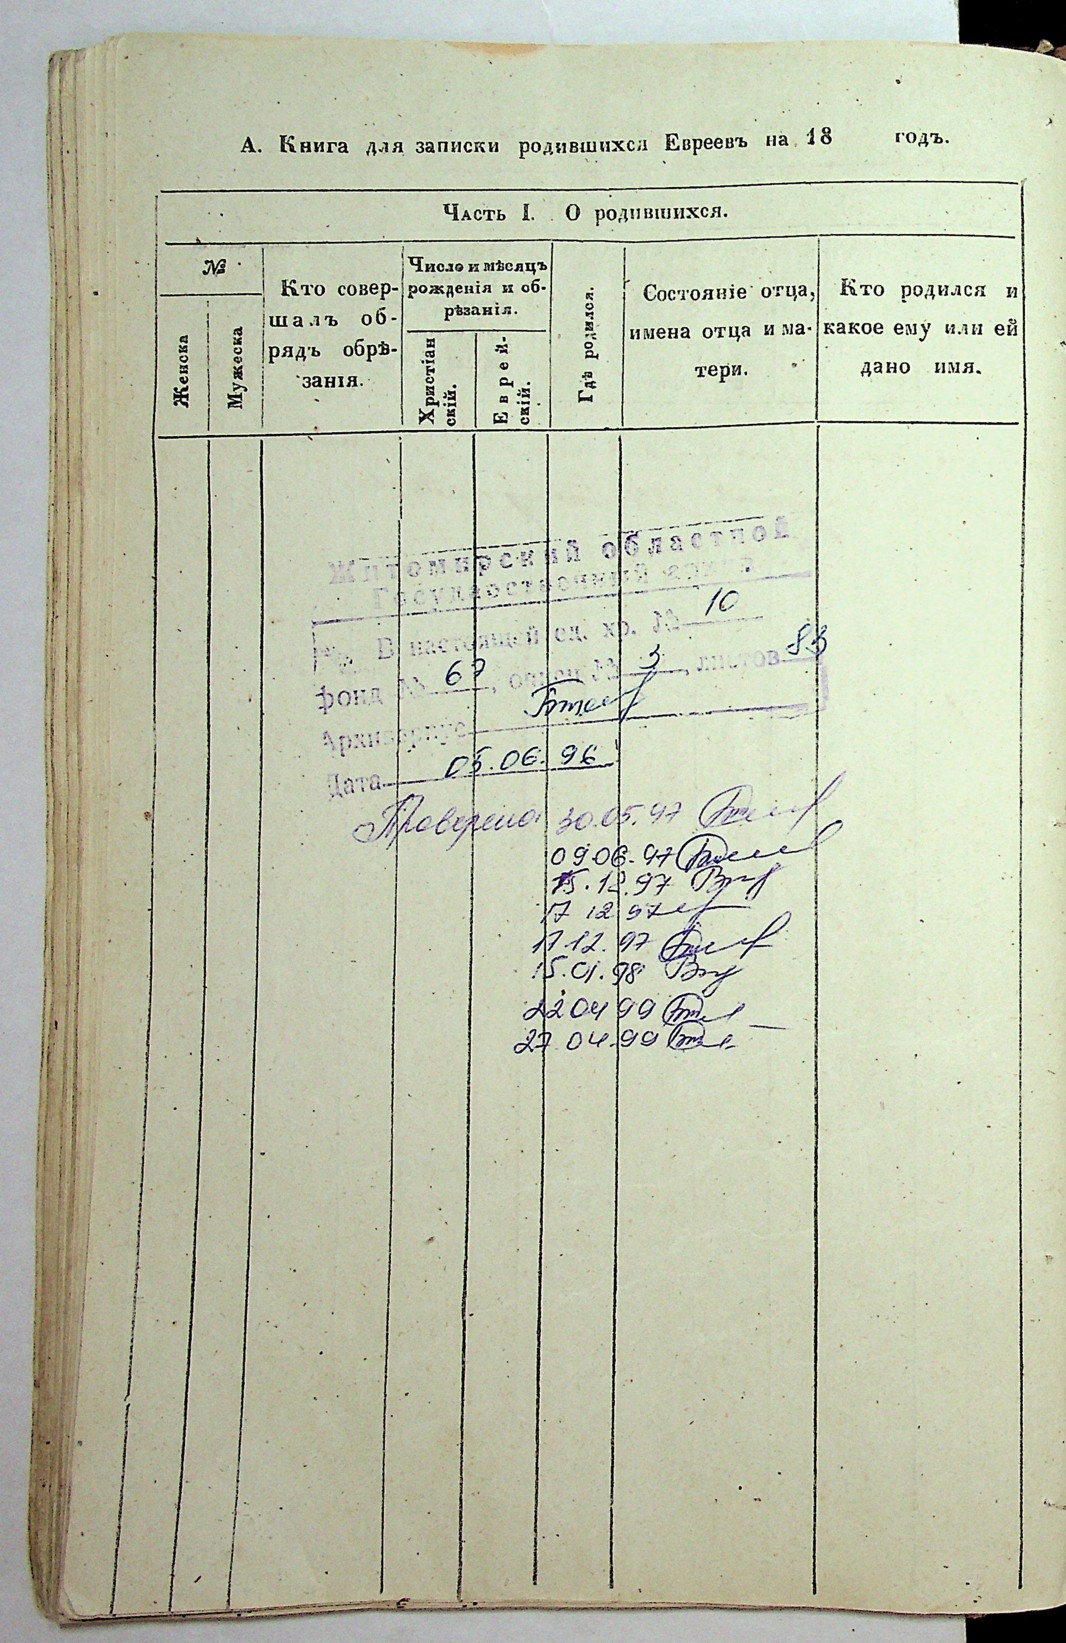 А. Книга для записки родившихся Евреевъ на 18 годъ.
Часть I. О родившихся.
№
Женска
Мужеска
Кто совер-
шалъ об-
рядъ обрѣ-
занія.
Число и мѣсяцъ
рожденія и об-
рѣзанія.
Христіан
скій.
Еврей-
скій.
Гдѣ родился.
Состояніе отца,
имена отца и ма-
тери.
Кто родился и
какое ему или ей
дано имя.
Житомирский областной
Государственный архив
В настоящей ед. хр. № 10
фонд № 67, опись № 3, листов 83
Архивариус
Дата 05.06.96
Проверено 30.05.97
09.06.97
15.12.97
17 12 97
17.12.97
15.01.98
22 04 99
27 04.99